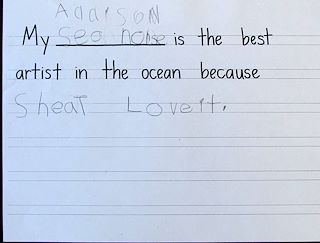 Addison
My Sea horse is the best
artist in the ocean because
Sheat Love it.